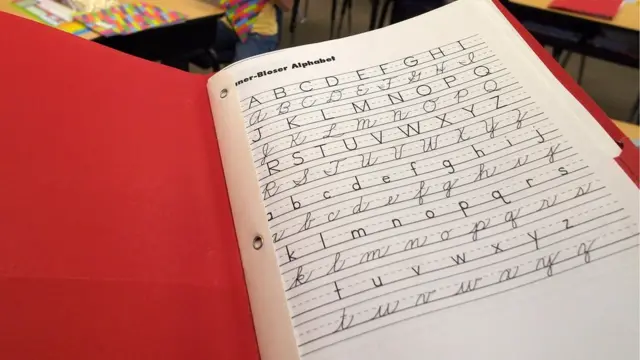 mer-Bloser Alphabet
A B C D E F G H I
A B C D E F G H I
J K L M N O P Q
J K L M N O P Q
R S T U V W X Y Z
R S T U V W X Y Z
a b c d e f g h i j
a b c d e f g h i j
k l m n o p q r s
k l m n o p q r s
t u v w x y z
t u v w x y z